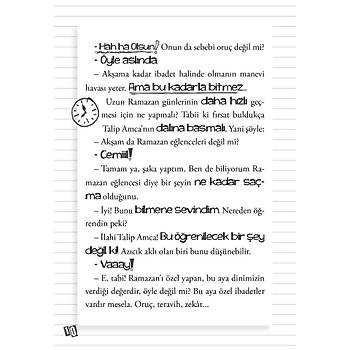 - Hah ha Olsun! Onun da sebebi oruç değil mi?
- Öyle aslında.
– Akşama kadar ibadet halinde olmanın manevi
havası yeter. Ama bu kadarla bitmez...
Uzun Ramazan günlerinin daha hızlı geç-
mesi için ne yapmalı? Tabii ki fırsat buldukça
Talip Amca'nın dalına basmalı. Yani şöyle:
– Akşam da Ramazan eğlenceleri değil mi?
- Cemiil!
– Tamam ya, şaka yaptım. Ben de biliyorum Ra-
mazan eğlencesi diye bir şeyin ne kadar saç-
ma olduğunu.
– İyi! Bunu bilmene sevindim. Nereden öğ-
rendin peki?
– İlahi Talip Amca! Bu öğrenilecek bir şey
değil ki! Azıcık aklı olan biri bunu düşünebilir.
- Vaaay!
– E, tabi! Ramazan'ı özel yapan, bu aya dinimizin
verdiği değerdir, öyle değil mi? Bu aya özel ibadetler
vardır mesela. Oruç, teravih, zekât...
10